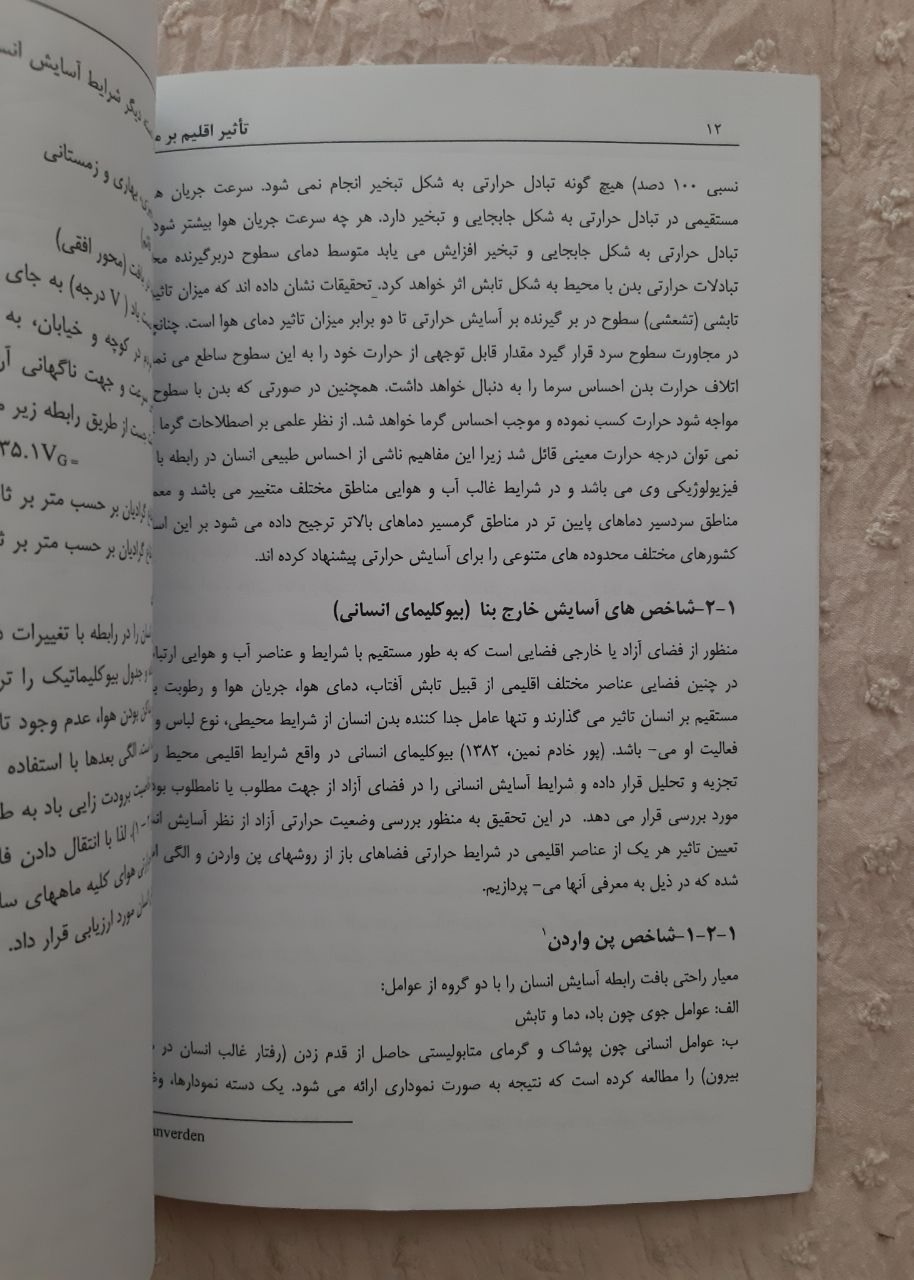 ۱۲
تأثیر اقلیم بر
نسبی ۱۰۰ دصد) هیچ گونه تبادل حرارتی به شکل تبخیر انجام نمی شود. سرعت جریان
مستقیمی در تبادل حرارتی به شکل جابجایی و تبخیر دارد. هر چه سرعت جریان هوا بیشتر شود
تبادل حرارتی به شکل جابجایی و تبخیر افزایش می یابد متوسط دمای سطوح دربرگیرنده
تبادلات حرارتی بدن با محیط به شکل تابش اثر خواهد کرد. تحقیقات نشان داده اند که میزان تاثیر
تابشی (تشعشی) سطوح در بر گیرنده بر آسایش حرارتی تا دو برابر میزان تاثیر دمای هوا است.
در مجاورت سطوح سرد قرار گیرد مقدار قابل توجهی از حرارت خود را به این سطوح ساطع می
اتلاف حرارت بدن احساس سرما را به دنبال خواهد داشت. همچنین در صورتی که بدن با سطوح
مواجه شود حرارت کسب نموده و موجب احساس گرما خواهد شد. از نظر علمی بر اصطلاحات گرما
نمی توان درجه حرارت معینی قائل شد زیرا این مفاهیم ناشی از احساس طبیعی انسان در رابطه با
فیزیولوژیکی وی می باشد و در شرایط غالب آب و هوایی مناطق مختلف متغییر می باشد و
مناطق سردسیر دماهای پایین تر در مناطق گرمسیر دماهای بالاتر ترجیح داده می شود بر این
کشورهای مختلف محدوده های متنوعی را برای آسایش حرارتی پیشنهاد کرده اند.
۱-۲-شاخص های آسایش خارج بنا (بیوکلیمای انسانی)
منظور از فضای آزاد یا خارجی فضایی است که به طور مستقیم با شرایط و عناصر آب و هوایی
در چنین فضایی عناصر مختلف اقلیمی از قبیل تابش آفتاب، دمای هوا، جریان هوا و رطوبت
مستقیم بر انسان تاثیر می گذارند و تنها عامل جدا کننده بدن انسان از شرایط محیطی، نوع لباس و
فعالیت او می- باشد. (پور خادم نمین، ۱۳۸۲) بیوکلیمای انسانی در واقع شرایط اقلیمی محیط
تجزیه و تحلیل قرار داده و شرایط آسایش انسانی را در فضای آزاد از جهت مطلوب یا نامطلوب
مورد بررسی قرار می دهد. در این تحقیق به منظور بررسی وضعیت حرارتی آزاد از نظر آسایش
تعیین تاثیر هر یک از عناصر اقلیمی در شرایط حرارتی فضاهای باز از روشهای پن واردن و الگی
شده که در ذیل به معرفی آنها می- پردازیم.
۱-۲-۱-شاخص پن واردن۱
معیار راحتی بافت رابطه آسایش انسان را با دو گروه از عوامل:
الف: عوامل جوی چون باد، دما و تابش
ب: عوامل انسانی چون پوشاک و گرمای متابولیستی حاصل از قدم زدن (رفتار غالب انسان در
بیرون) را مطالعه کرده است که نتیجه به صورت نموداری ارائه می شود. یک دسته نمودارها،
دیگر شرایط آسایش
بهاری و زمستانی
(محور افقی)
درجه) به جای
در کوچه و خیابان، به
و جهت ناگهانی
از طریق رابطه زیر
گرادیان بر حسب متر بر
گرادیان بر حسب متر بر
را در رابطه با تغییرات
و جدول بیوکلیماتیک را
بودن هوا، عدم وجود
الگی بعدها با استفاده
برودت زایی باد به
لذا با انتقال دادن
هوای کلیه ماههای
مورد ارزیابی قرار داد.